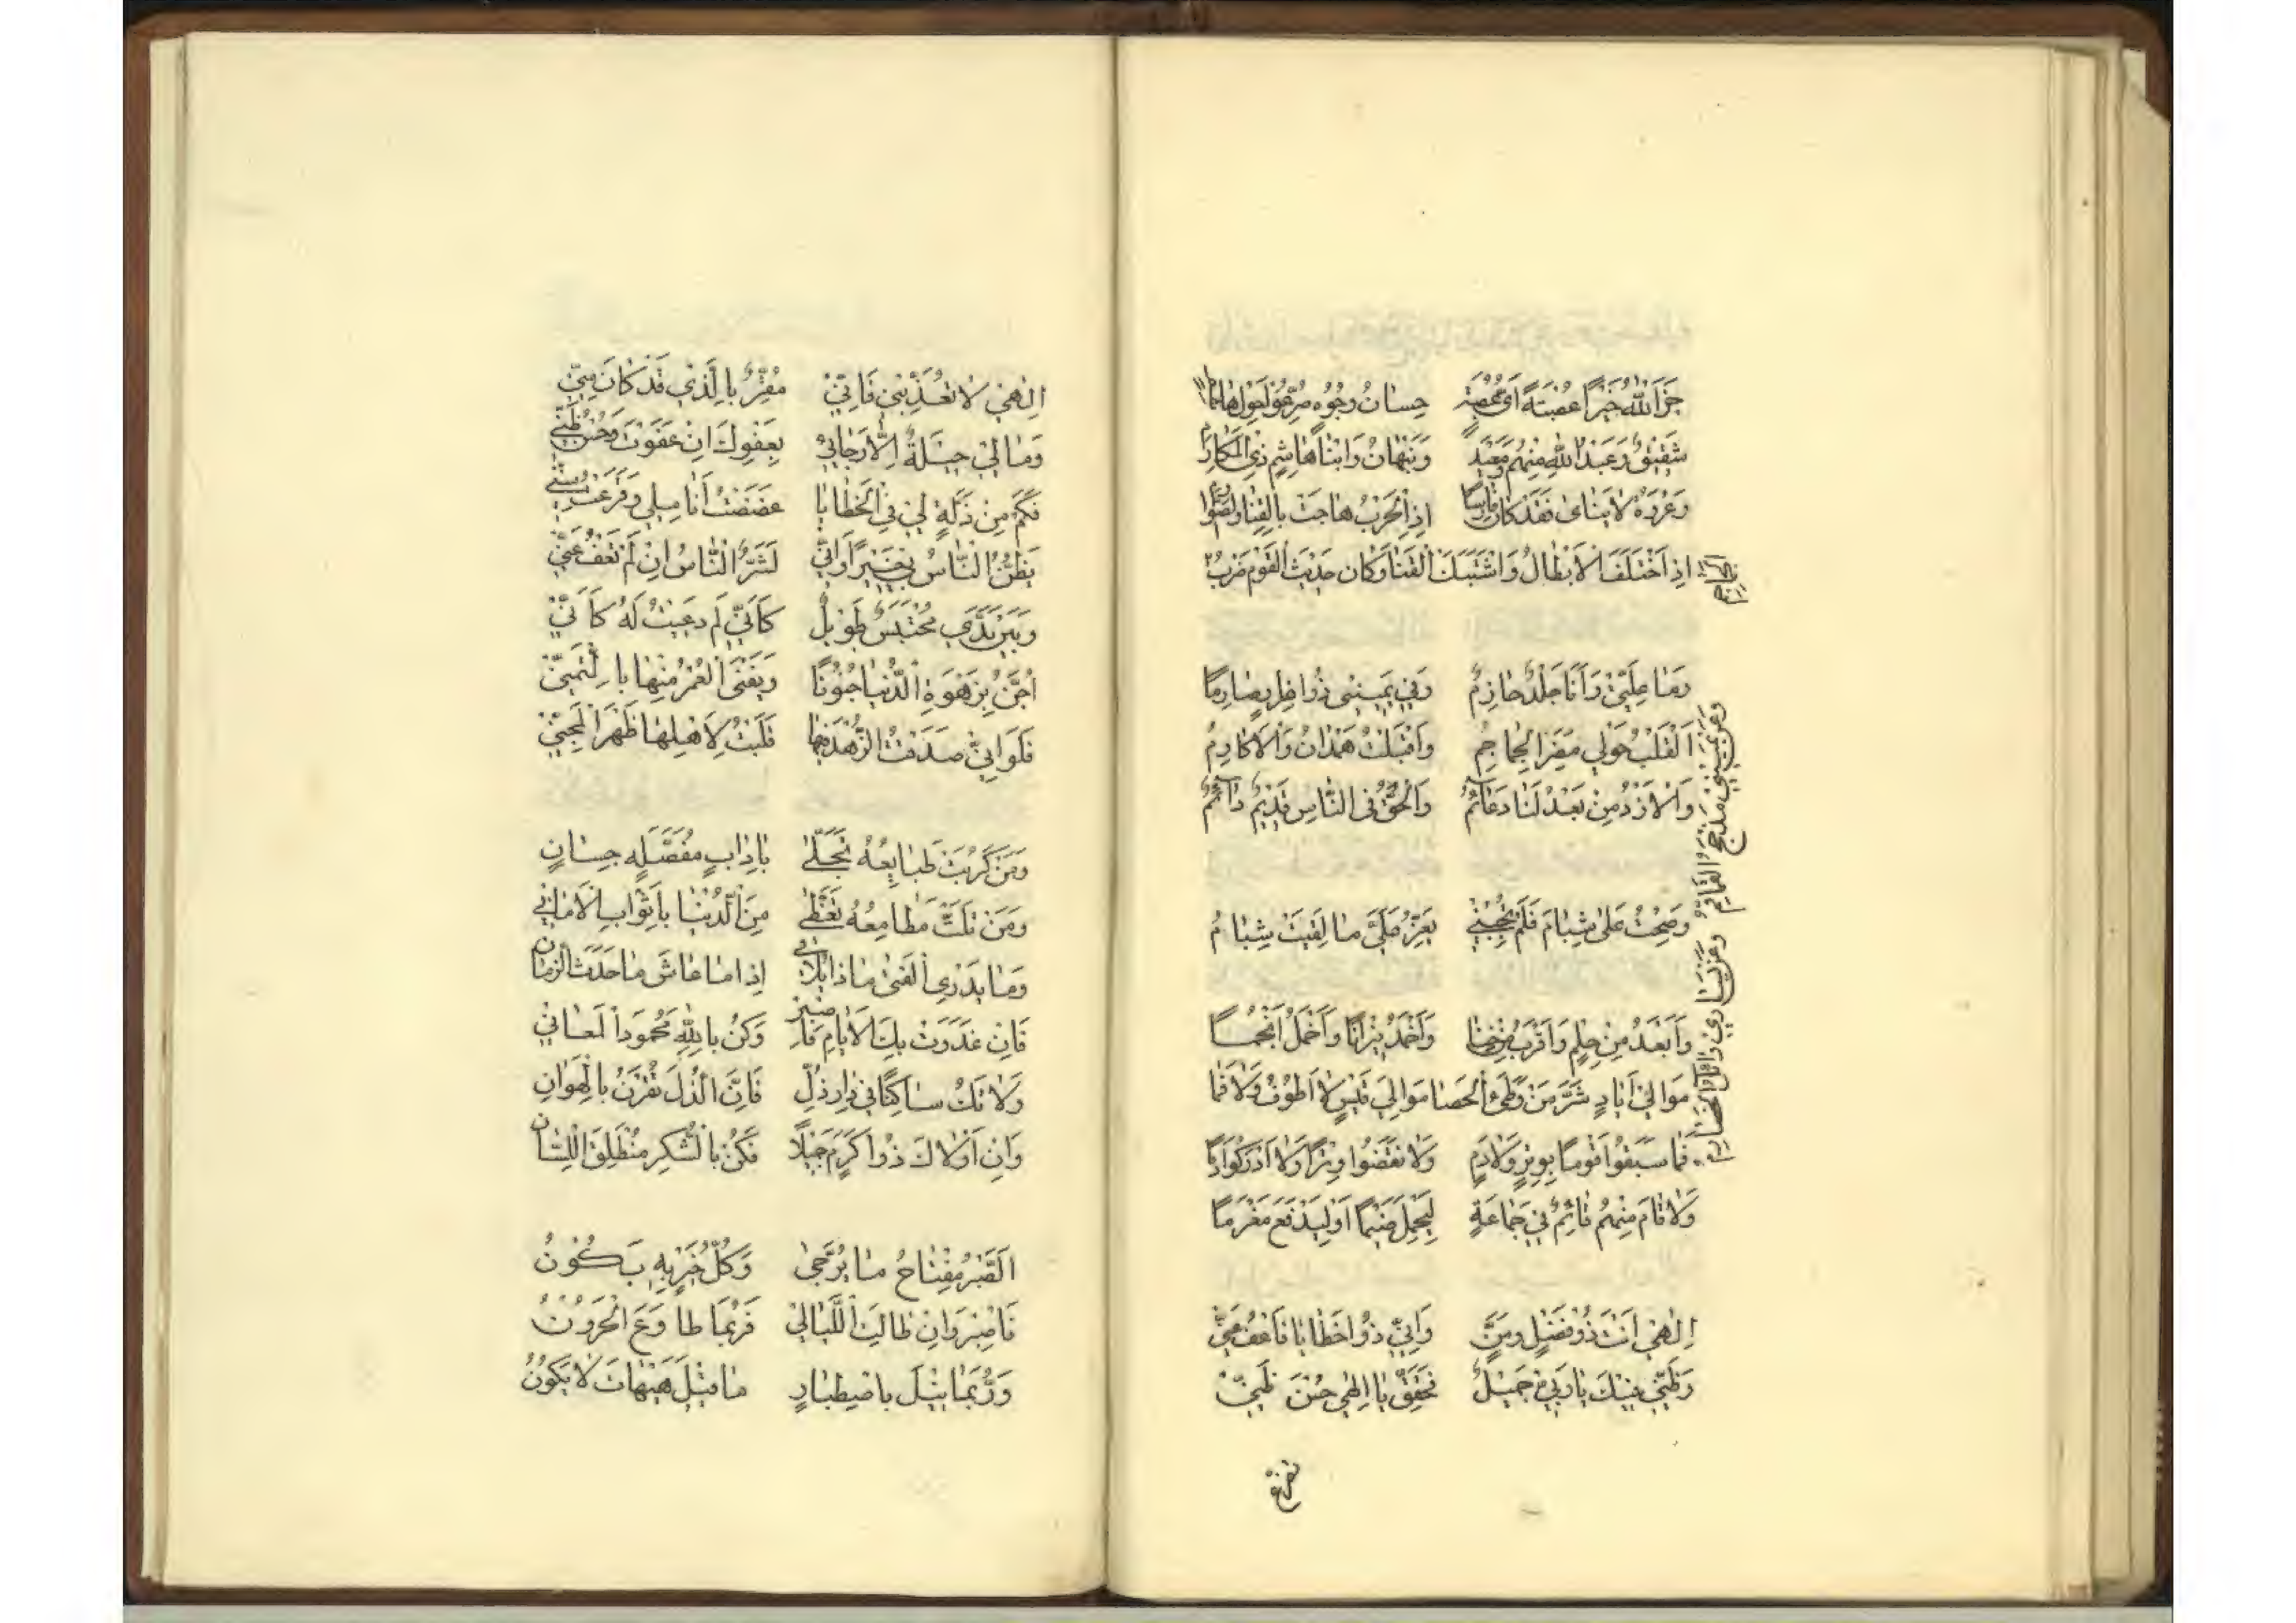 جَزَا اللّٰهُ خَيْرًا عُصْبَةً اَيَّ عُصْبَةٍ حِسَانُ وُجُوهٍ صُرِّعُوا حَوْلَ هَاشِمَا
شَقِيقٌ وَعَبْدُ اللّٰهِ مِنْهُمْ وَمَعْبَدٌ وَنَبْهَانُ وَابْنَا هَاشِمٍ ذِي الْمَكَارِمِ
وَعُرْوَةُ لَا يَنْاىٰ فَقَدْ كَانَ فَارِسًا اِذِ الْحَرْبُ هَاجَتْ بِالْقَنَا وَالصَّوَارِمِ
اِذِ اخْتَلَفَ الْاَبْطَالُ وَاشْتَبَكَ الْقَنَا وَكَانَ حَدِيثُ الْقَوْمِ ضَرْبُ الْجَمَاجِمِ
وَمَا عِلَّتِيْ وَاَنَا جَلْدٌ حَازِمٌ وَفِي يَمِينِي ذُو اغِرَارٍ صَارِمَا
وَعَنْ يَمِينِي مَذْحِجُ الْقَمَاقِمُ
وَعَنْ يَسَارِي وَائِلُ الْخَضَارِمُ
اَلْقَلْبُ حَوْلِي مُضَرُ الْجَمَاجِمُ وَاَقْبَلَتْ هَمْدَانُ وَالْاَكَارِمُ
وَالْاَزْدُ مِنْ بَعْدُ لَنَا دَعَائِمُ وَالْحَقُّ فِى النَّاسِ قَدِيمٌ دَائِمُ
وَصِحْتُ عَلىٰ شِبَامَ فَلَمْ تُجِبْنِي يَعِزُّ عَلَيَّ مَا لَقِيَتْ شِبَامُ
وَاَبْعَدُ مِنْ حِلْمٍ وَاَقْرَبُ مِنْ خَنَا وَاَخْمَدُ نِيْرَانًا وَاَخْمَلُ اَنْجُمَا
مَوَالِي اَيَادٍ شَرُّ مَنْ وَطِئَ الْحَصَا مَوَالِيَ قَيْسٍ لَا اُنُوفٌ وَلَا فَمَا
فَمَا سَبَقُوا قَوْمًا بِوِتْرٍ وَلَا دَمٍ وَلَا نَقَضُوا وِتْرًا وَلَا اَدْرَكُوا دَمَا
وَلَا قَامَ مِنْهُمْ قَائِمٌ فِي جَمَاعَةٍ لِيَحْمِلَ ضَيْمًا اَوْ لِيَدْفَعَ مَغْرَمَا
اِلٰهِي اَنْتَ ذُو فَضْلٍ وَمَنٍّ وَاِنِّي ذُوا خَطَايَا فَاعْفُ عَنِّي
وَظَنِّي فِيْكَ يَا رَبِّي جَمِيلٌ فَحَقِّقْ يَا اِلٰهِي حُسْنَ ظَنِّيْ
اِلٰهِي لَا تُعَذِّبْنِي فَاِنِّيْ مُقِرٌّ بِالَّذِي قَدْ كَانَ مِنِّي
وَمَا لِيْ حِيْلَةٌ اِلَّا رَجَائِيْ بِعَفْوِكَ اِنْ عَفَوْتَ وَحُسْنُ ظَنِّي
فَكَمْ مِنْ ذَلَّةٍ لِيْ فِي الْخَطَايَا عَضَضْتُ اَنَامِلِي وَقَرَعْتُ سِنِّي
يَظُنُّ النَّاسُ بِي خَيْرًا وَاِنِّي لَشَرُّ النَّاسِ اِنْ لَمْ تَعْفُ عَنِّي
وَبَيْنَ يَدَيَّ مُحْتَبَسٌ طَوِيلٌ كَاَنِّي لَمْ دُعِيتُ لَهُ كَاَنِّيْ
اُجَنُّ بِزَهْوَةِ الدُّنْيَا جُنُونًا وَيَفْنَى الْعُمْرُ مِنْهَا بِالتَّمَنِّيْ
فَلَوْ اَنِّي صَدَقْتُ الزُّهْدَ فِيهَا قَلَبْتُ لِاَهْلِهَا ظَهْرَ الْمِجَنِّيْ
وَمَنْ كَرُمَتْ طَبَايِعُهُ تَحَلّىٰ بِاٰدَابٍ مُفَصَّلَةٍ حِسَانٍ
وَمَنْ قَلَّتْ مَطَامِعُهُ تَغَطّىٰ مِنَ الدُّنْيَا بِاَثْوَابِ الْاَمَانِي
وَمَا يَدْرِي الْفَتىٰ مَاذَا يُلَاقِي اِذَا مَا عَاشَ مَا حَدَثَ الزَّمَانِ
فَاِنْ غَدَرَتْ بِكَ الْاَيَّامُ فَاصْبِرْ وَكُنْ بِاللّٰهِ مَحْمُودَ الْمَعَانِي
وَلَا تَكُ سَاكِنًا فِي دَارِ ذُلٍّ فَاِنَّ الذُّلَّ تُقْرَنُ بِالْهَوَانِ
وَاِنْ اَوْلَاكَ ذُو اكَرَمٍ جَمِيْلًا فَكُنْ بِالشُّكْرِ مُنْطَلِقَ اللِّسَانِ
اَلصَّبْرُ مِفْتَاحُ مَا يُرَجّىٰ وَكُلُّ خَيْرٍ بِهِ يَكُوْنُ
فَاصْبِرْ وَاِنْ طَالَتِ اللَّيَالِيْ فَرُبَّمَا طَاوَعَ الْحَرُوْنُ
وَرُبَّمَا نِيْلَ بِاصْطِبَارٍ مَا قِيْلَ هَيْهَاتَ لَا يَكُوْنُ